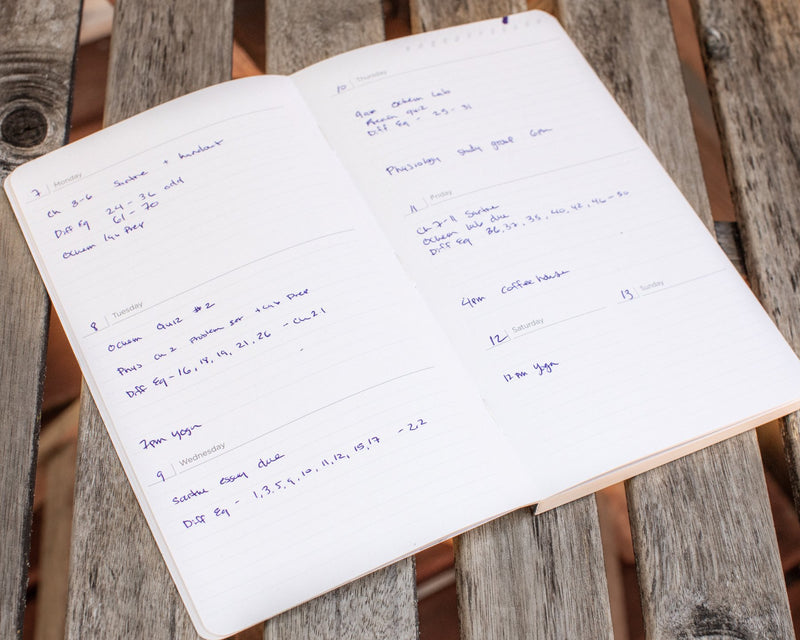 7 Monday
Ch 3-6 Sartre + handout
Diff Eq 24 - 36 odd
61 - 70
Ochem lab Prep
8 Tuesday
Ochem Quiz #2
Phys Ch 2 Problem set + Lab Prep
Diff Eq - 16, 18, 19, 21, 26 - Ch 2.1
7pm yoga
9 Wednesday
Sartre essay due
Diff Eq - 1, 3, 5, 9, 10, 11, 12, 15, 17 - 2.2
10 Thursday
9am Ochem Lab
quiz
Diff Eq - 25 - 31
Physiology study group 6pm
11 Friday
Ch 7-11 Sartre
Ochem lab due
Diff Eq 36, 37, 38, 40, 42, 46 - 50
4pm coffee house
12 Saturday
12 pm yoga
13 Sunday